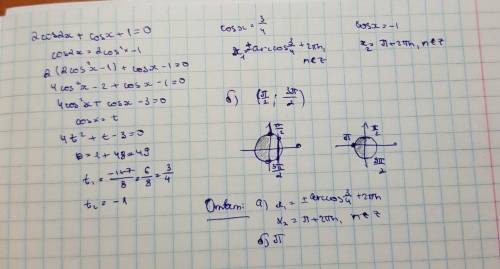 2cos2x + cosx + 1 = 0
cos2x = 2cos²x - 1
2(2cos²x - 1) + cosx - 1 = 0
4cos²x - 2 + cosx - 1 = 0
4cos²x + cosx - 3 = 0
cosx = t
4t² + t - 3 = 0
D = 1 + 48 = 49
t₁ = (-1+7)/8 = 6/8 = 3/4
t₂ = -1
cosx = 3/4
x₁ = ±arccos 3/4 + 2πn,
n∈z
cosx = -1
x₂ = π + 2πn, n∈z
б) (π/2; 3π/2)
π/2
3π/2
π
π/2
3π/2
Ответ: а) x₁ = ±arccos 3/4 + 2πn
x₂ = π + 2πn, n∈z
б) π